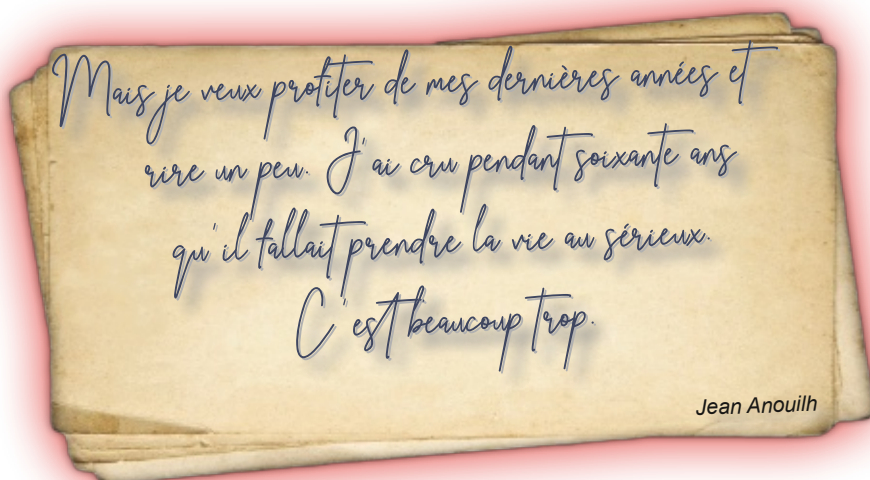 Mais je veux profiter de mes dernières années et
rire un peu. J'ai cru pendant soixante ans
qu'il fallait prendre la vie au sérieux.
C'est beaucoup trop.
Jean Anouilh